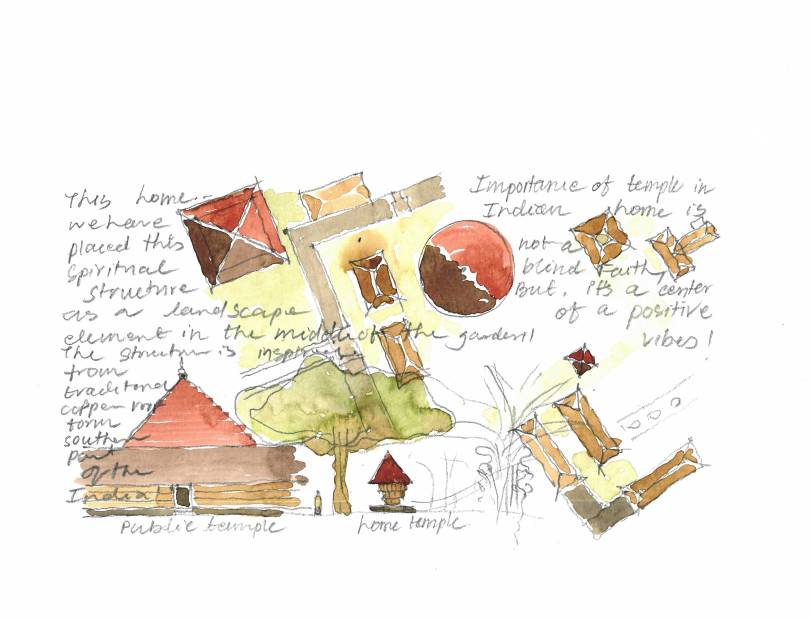 This home:-
we have
placed this
spiritual
structure
as a landscape
element in the middle of the garden!
The structure is inspired
from
traditional
copper roof
form
southern
part
of the
India!
Importance of temple in
Indian home is
not a
blind faith,
But, its a center
of a positive
vibes!
Public temple
home temple